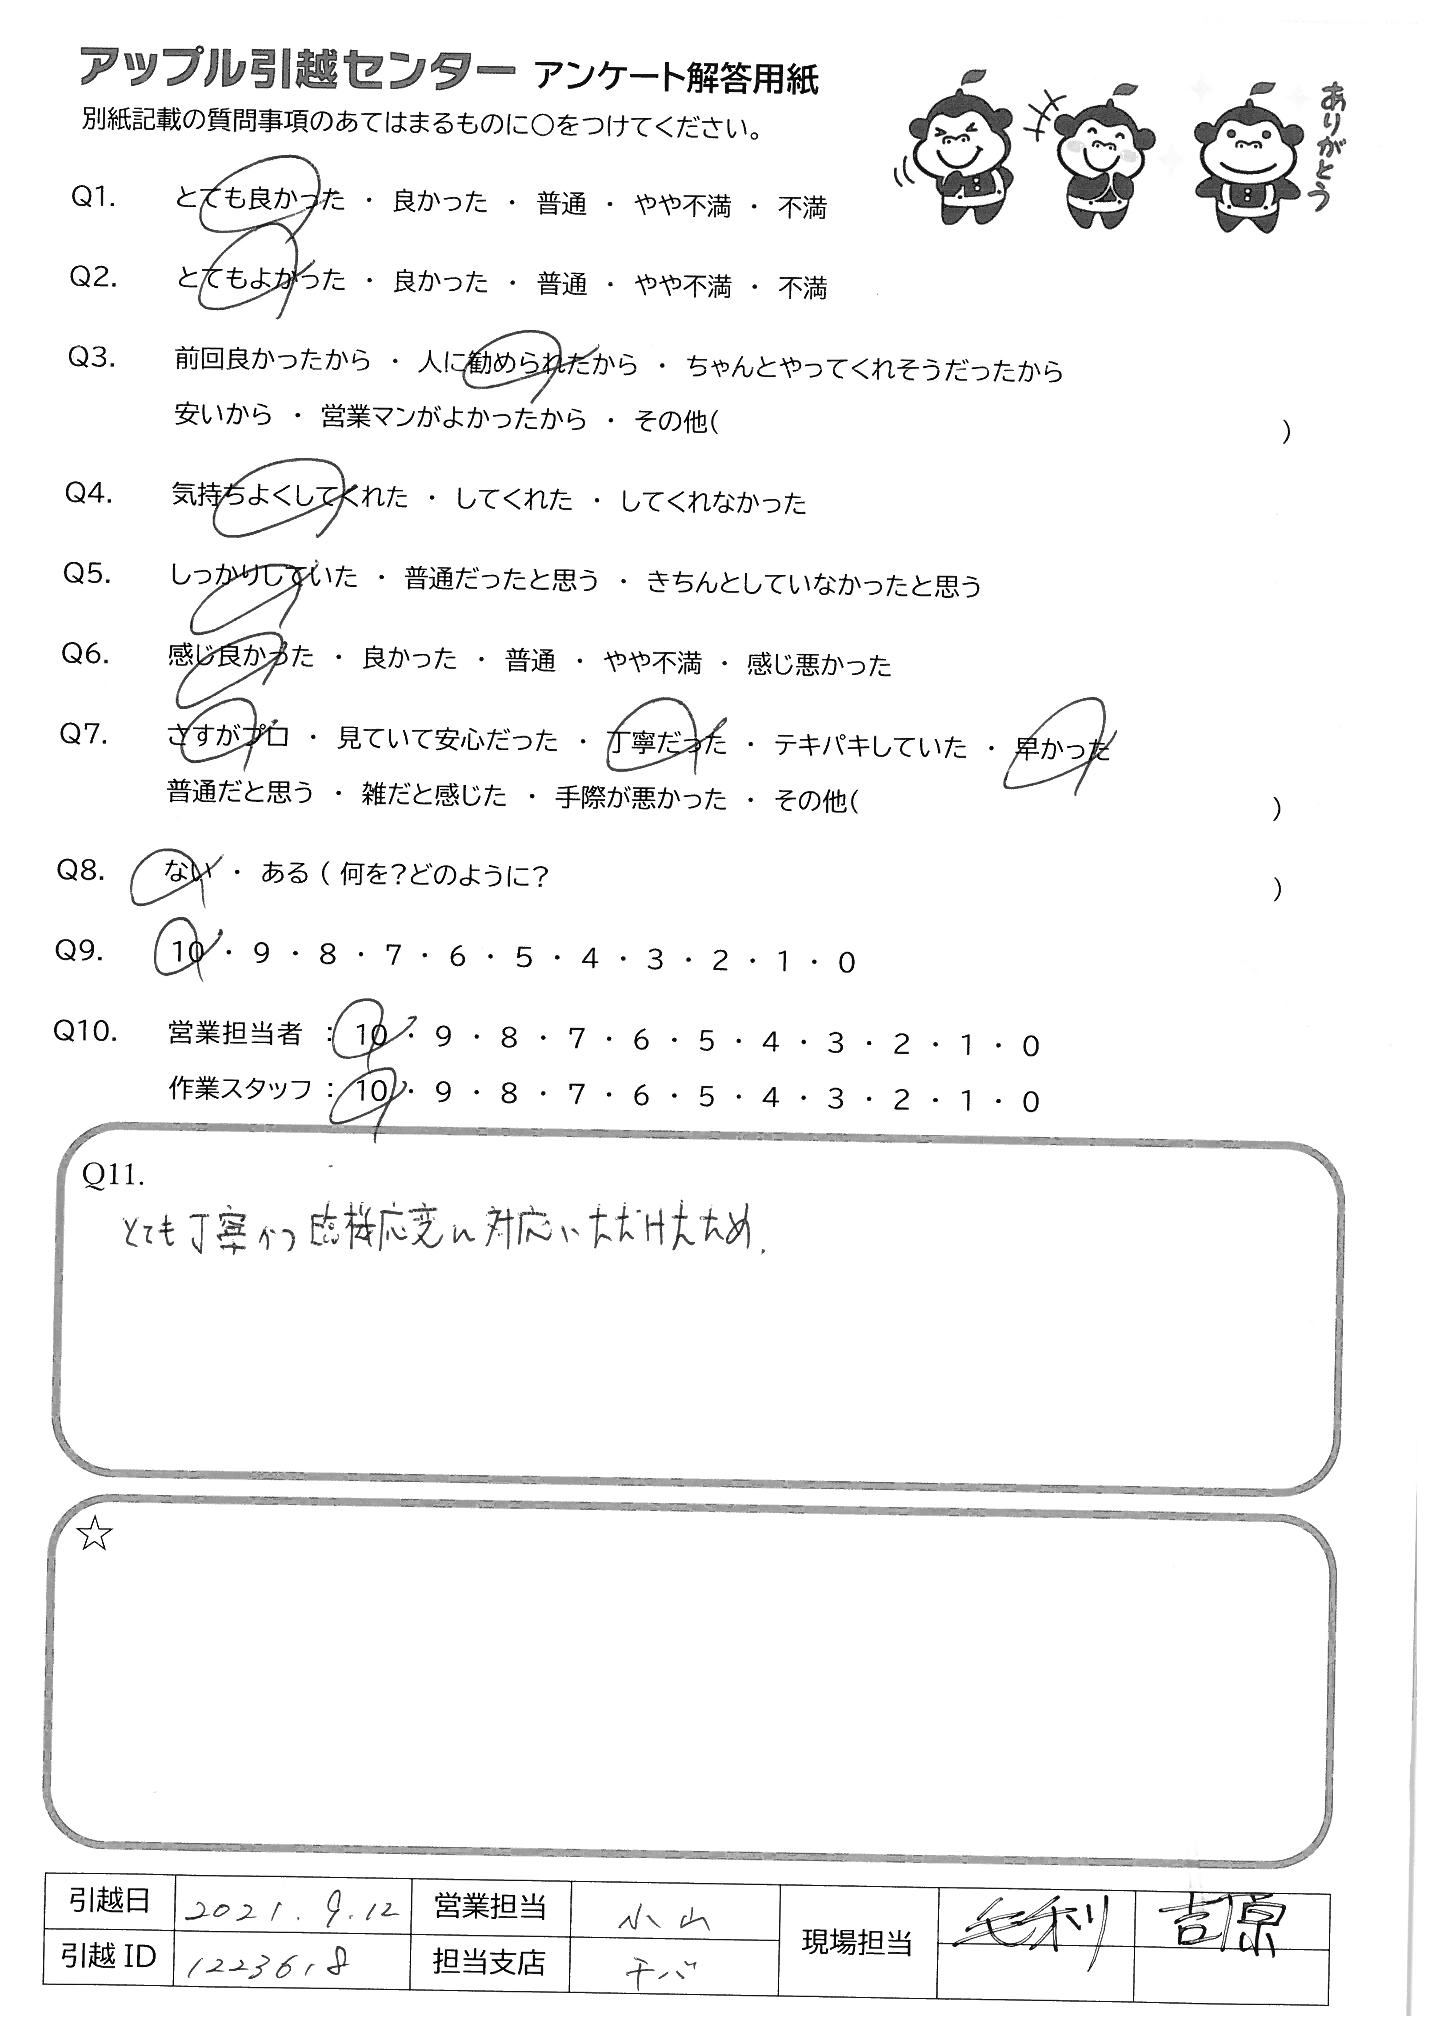 アップル引越センター アンケート解答用紙
別紙記載の質問事項のあてはまるものに○をつけてください。
ありがとう
Q1. とても良かった ・ 良かった ・ 普通 ・ やや不満 ・ 不満
Q2. とてもよかった ・ 良かった ・ 普通 ・ やや不満 ・ 不満
Q3. 前回良かったから ・ 人に勧められたから ・ ちゃんとやってくれそうだったから
安いから ・ 営業マンがよかったから ・ その他( )
Q4. 気持ちよくしてくれた ・ してくれた ・ してくれなかった
Q5. しっかりしていた ・ 普通だったと思う ・ きちんとしていなかったと思う
Q6. 感じ良かった ・ 良かった ・ 普通 ・ やや不満 ・ 感じ悪かった
Q7. さすがプロ ・ 見ていて安心だった ・ 丁寧だった ・ テキパキしていた ・ 早かった
普通だと思う ・ 雑だと感じた ・ 手際が悪かった ・ その他( )
Q8. ない ・ ある ( 何を?どのように? )
Q9. 10 ・ 9 ・ 8 ・ 7 ・ 6 ・ 5 ・ 4 ・ 3 ・ 2 ・ 1 ・ 0
Q10. 営業担当者 : 10 ・ 9 ・ 8 ・ 7 ・ 6 ・ 5 ・ 4 ・ 3 ・ 2 ・ 1 ・ 0
作業スタッフ : 10 ・ 9 ・ 8 ・ 7 ・ 6 ・ 5 ・ 4 ・ 3 ・ 2 ・ 1 ・ 0
Q11.
とても丁寧かつ臨機応変に対応いただけたため.
☆
引越日 2021.9.12 営業担当 小山 現場担当 毛利 吉原
引越 ID 1223618 担当支店 千バ